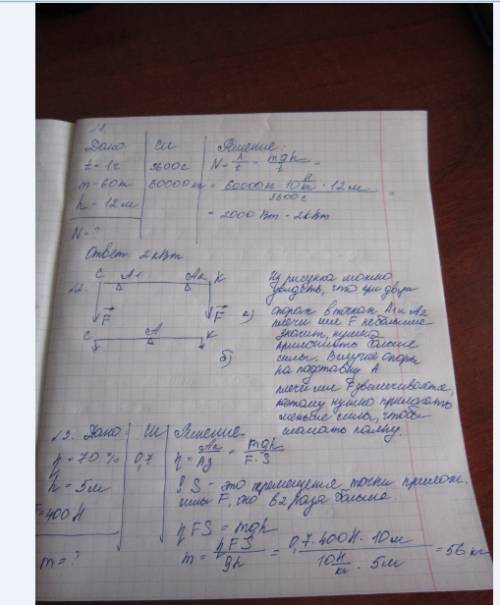 11.
Дано | СИ | Решение:
t = 1ч | 3600с | N = A/t = mgh/t =
m = 60т | 60000кг | = 60000кг · 10 Н/кг · 12м / 3600с =
h = 12м
= 2000 Вт = 2кВт
N = ?
Ответ 2кВт
12.
C A1 A2 K
F F а)
C A K
б)
Из рисунка можно
увидеть, что при двух
опорах в точках A1 и A2
плечи сил F небольшие
значит, нужно
приложить большие
силы. В случае опоры
на подставку A
плечи сил F увеличивается,
поэтому нужно прилагать
меньше силы, чтобы
сломать палку.
13. Дано | СИ | Решение
η = 70% | 0,7 | η = Aп/Aз = mgh/F·S
h = 5м
S - это перемещение точки прилож.
силы F, оно в 2 раза больше
F = 400Н
ηFS = mgh
m = ? m = ηFS/gh = 0,7·400Н·10м / 10 Н/кг · 5м = 56 кг